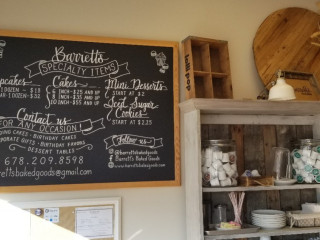 Barretts
SPECIALTY ITEMS
pcakes
Cakes
Mini Desserts
6 INCH - $25 AND UP
START AT $2
8 INCH - $35 AND UP
Iced Sugar
10 INCH - $55 AND UP
Cookies
START AT $2.25
Contact us
FOR ANY OCCASION!
CAKES • BIRTHDAY CAKES
GIFTS • BIRTHDAY FAVORS
DESSERT TABLES
678.209.8598
barrettsbakedgoods@gmail.com
Follow us
@barrettsbakedgoods
Barretts Baked Goods